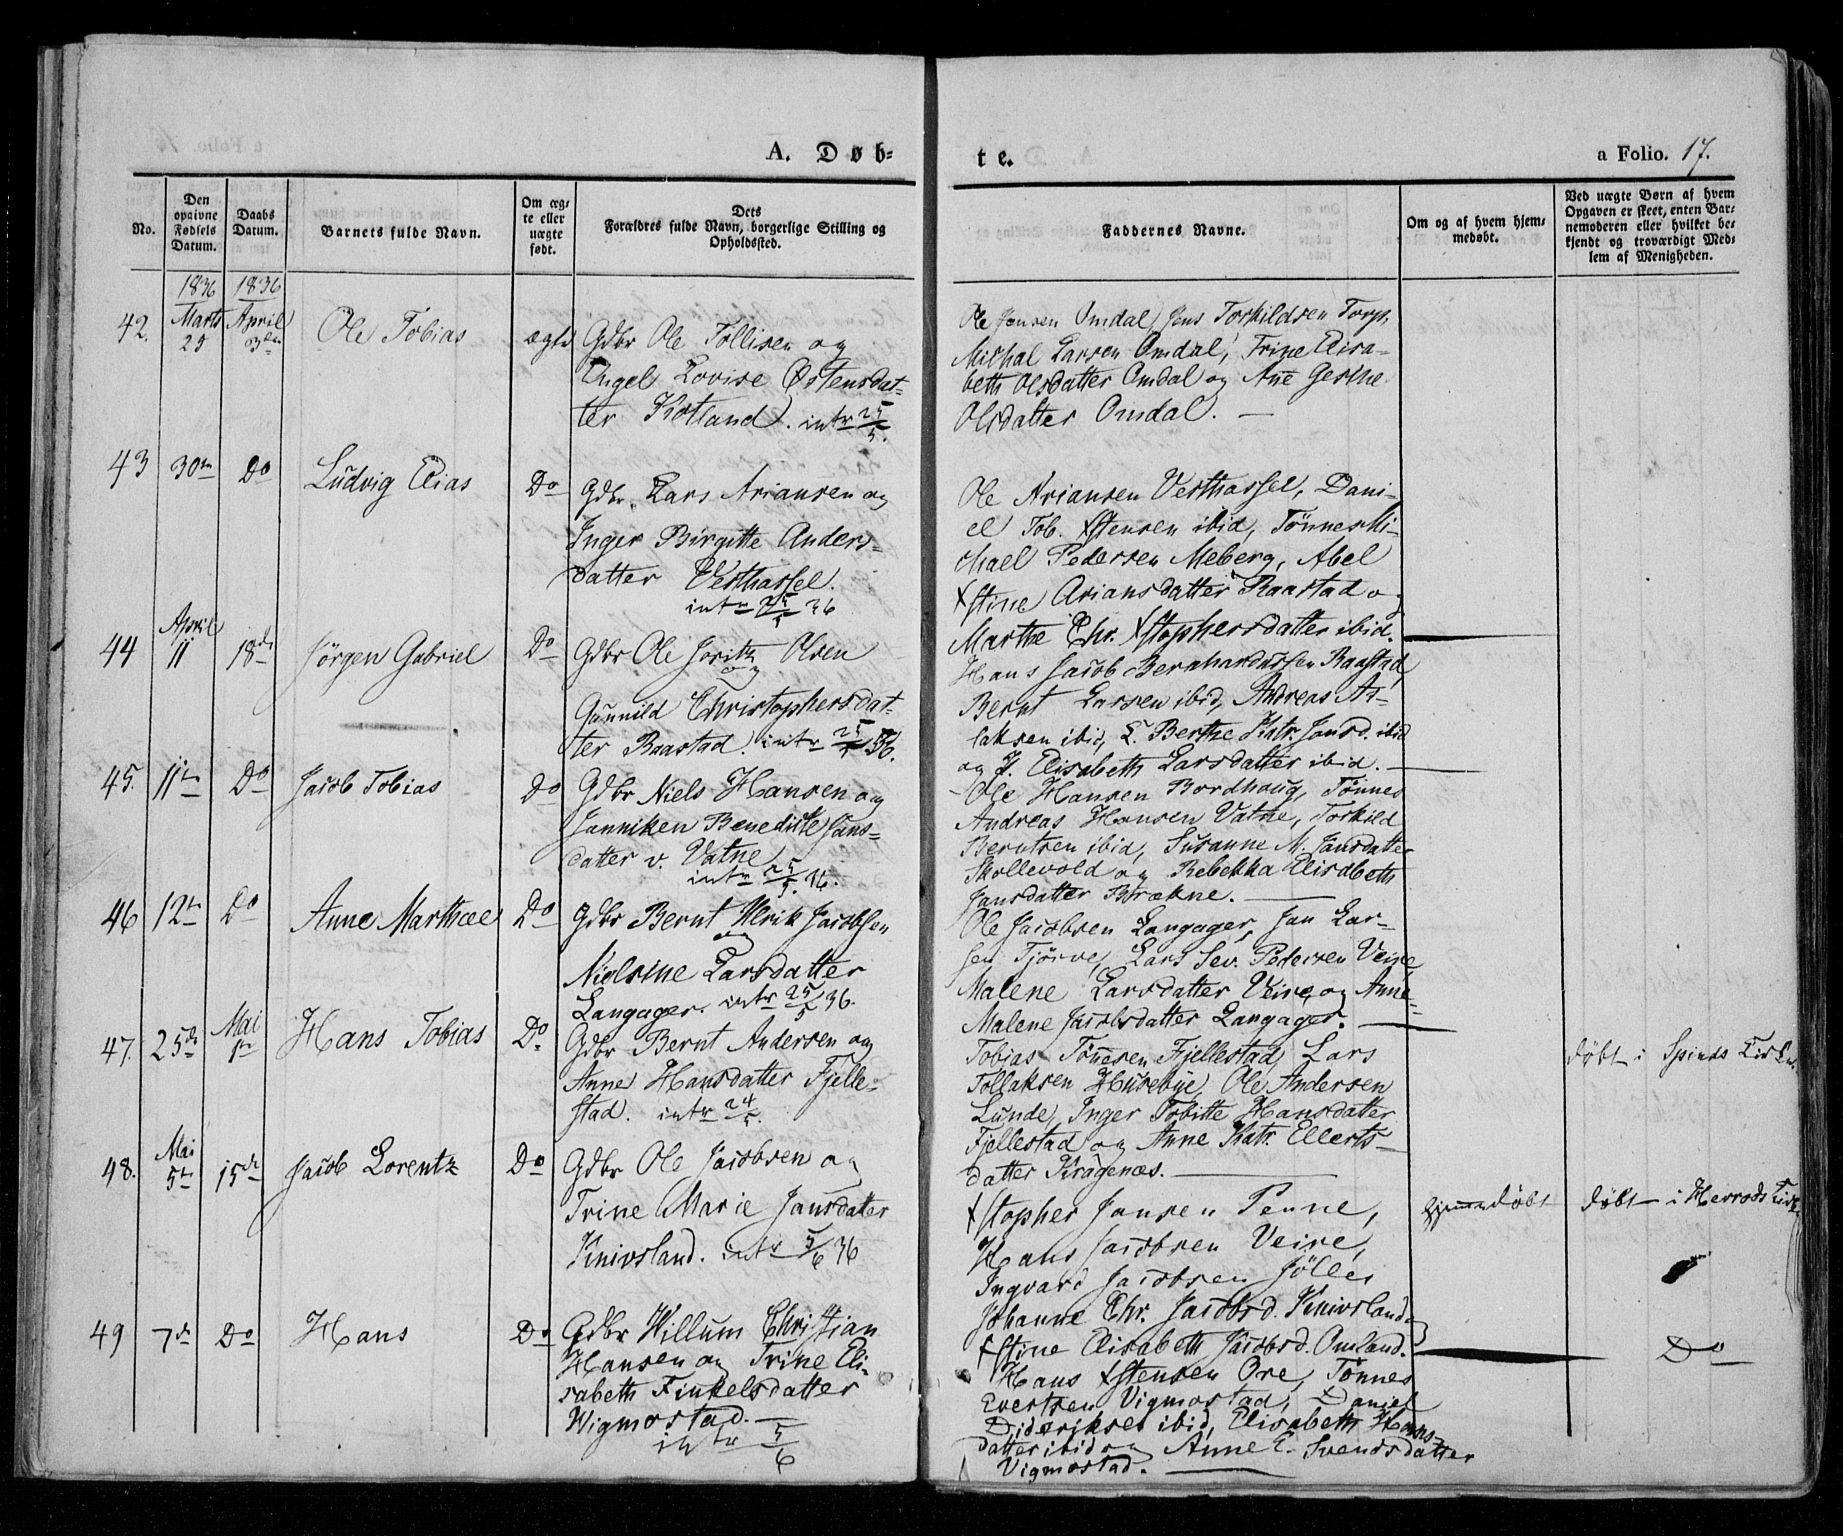 A. Døb=
te.
a Folio. 17.
No.
Den opgivne Fødsels Datum.
Daabs Datum.
Barnets fulde Navn.
Om æg-
te eller
uægte
født.
Dets
Forældres fulde Navn, borgerlige Stilling og
Opholdssted.
Faddernes Navne.
Om og af hvem hjem-
medøbt.
Ved uægte Børn af hvem
Opgaven er skeet, enten Bar-
nemoderen eller hvilket be-
kjendt og troværdigt Med-
lem af Menigheden.
1836 1836
42. Marts 25 April 3die Ole Tobias ægte Gdbr Ole Tollisen og
Engel Lovise Østensdat-
ter Kotland. intr 25/5.
Ole Jensen Omdal, Jens Torkildsen Torp,
Michal Larsen Omdal, Trine Elisa-
beth Olsdatter Omdal og Ane Gesche
Olsdatter Omdal. —
43 30te Do Ludvig Elias Do Gdbr. Lars Ariansen og
Inger Birgitte Anders-
datter Vesthassel.
intr 25/5 36
Ole Ariansen Vesthassel, Dani-
el Tob. Xstensen ibid, Tønnes Mi-
chael Pedersen Meberg, Abel
Xstine Ariansdatter Raastad og
Marthe Chr. Xstophersdatter ibid.
44 April 11 18de Jørgen Gabriel Do Gdbr Ole Joritz Olsen
og
Gunnild Christophersdat-
ter Raastad. intr 25/5 36.
Hans Jacob Bernhardussen Raastad,
Bernt Larsen ibid, Andreas As-
laksen ibid, L. Berthe Katr. Jansd. ibid
og J. Elisabeth Larsdatter ibid. —
45. 11te Do Jacob Tobias Do Gdbr Niels Hansen og
Janniken Benedicte Jans-
datter v. Vatne
intr 25/5. 36.
Ole Hansen Bordhoug, Tønnes
Andreas Hansen Vatne, Torkild
Berntsen ibid, Susanne M. Jansdatter
Skollevold og Rebekka Elisabeth
Jansdatter Brækne. —
46 12te Do Anne Marthæe Do Gdbr Bernt Ulrik Jacobsen
og
Nielsine Larsdatter
Langager. intr 25/5 36.
Ole Jacobsen Langager, Jan Lar-
sen Tjørve, Lars Sev. Pedersen Veire,
Malene Larsdatter Veire og Anne
Malene Jacobsdatter Langager. —
47. 25de Mai 1te Hans Tobias Do Gdbr Bernt Andersen og
Anne Hansdatter Fjelle-
stad. intr 24/5.
Tobias Tønnesen Fjellestad, Lars
Tollaksen Husebye, Ole Andersen
Lunde, Inger Tobitte Hansdatter
Fjellestad og Anne Katr. Ellerts-
datter Kragenæs. —
døbt i Spinds Kirke.
48. Mai 5te 15de Jacob Lorentz Do Gdbr Ole Jacobsen og
Trine Marie Jansdatter
Knivsland. intr 5/6 36
Xstopher Jansen Penne,
Hans Jacobsen Veire,
Ingvard Jacobsen Jølle,
Johanne Chr. Jacobsd. Knivsland og
Xstine Elisabeth Jacobsd. Omland.
hjemmedøbt
døbt i Herrods Kirke
49 7de Do Hans Do Gdbr Willum Christian
Hansen og Trine Eli-
sabeth Finkelsdatter
Wigmostad. —
intr 5/6
Hans Xstensen Ore, Tønnes
Evertsen Vigmostad, Daniel
Dideriksen ibid, Elisabeth Hans-
datter ibid og Anne E. Svendsdatter
Vigmostad. —
Do